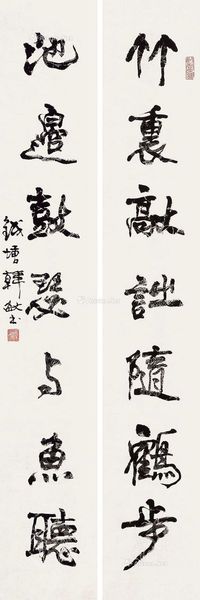 竹裏敲詩隨鶴步
池邊鼓瑟与魚聽
錢塘韓